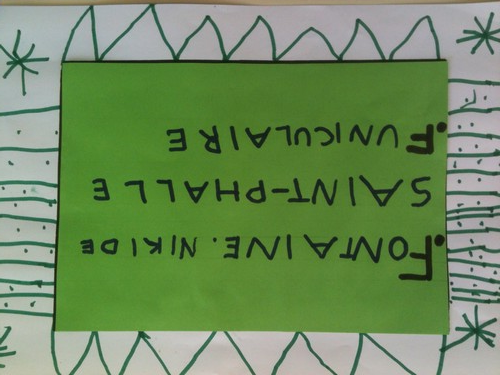 FONTAINE. NIKI DE
SAINT-PHALLE
FUNICULAIRE